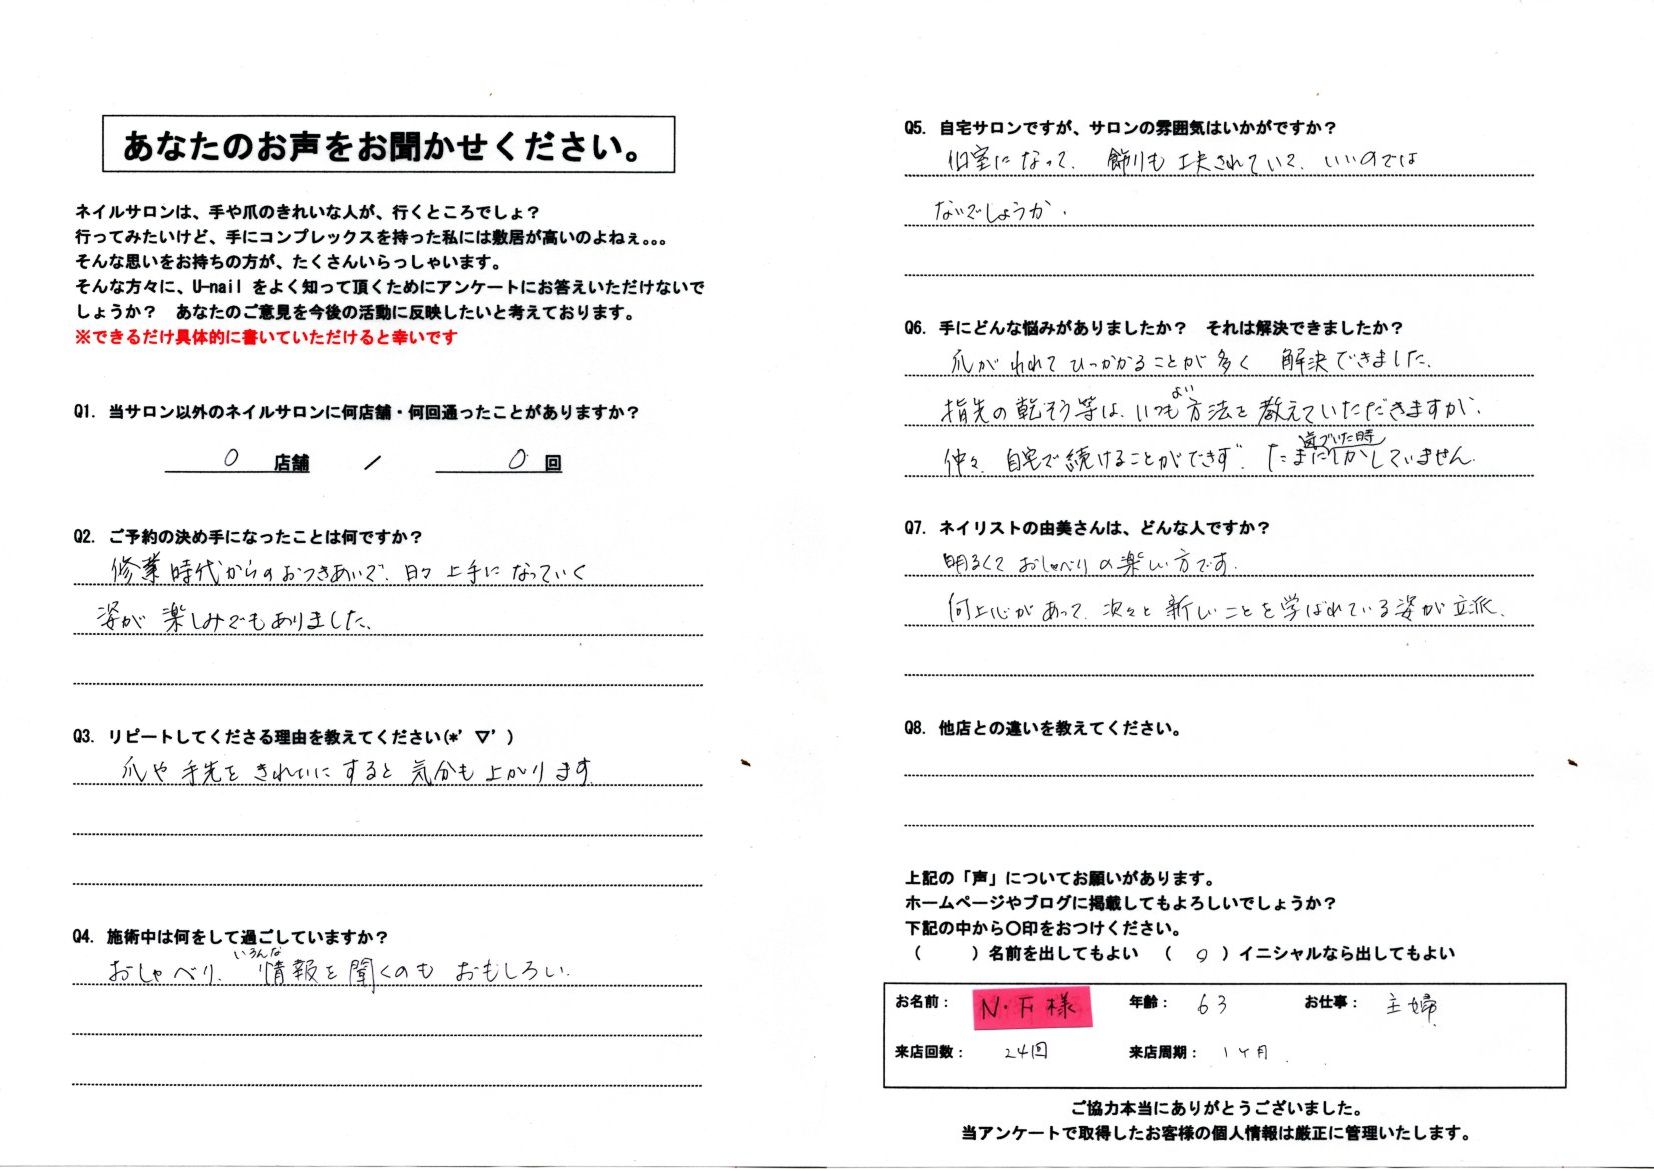 あなたのお声をお聞かせください。
ネイルサロンは、手や爪のきれいな人が、行くところでしょ？
行ってみたいけど、手にコンプレックスを持った私には敷居が高いのよねぇ。。。
そんな思いをお持ちの方が、たくさんいらっしゃいます。
そんな方々に、U-nail をよく知って頂くためにアンケートにお答えいただけないで
しょうか？　あなたのご意見を今後の活動に反映したいと考えております。
※できるだけ具体的に書いていただけると幸いです
Q1. 当サロン以外のネイルサロンに何店舗・何回通ったことがありますか？
0 店舗 ／ 0 回
Q2. ご予約の決め手になったことは何ですか？
修業時代からのおつきあいで、日々上手になっていく
姿が楽しみでもありました、
Q3. リピートしてくださる理由を教えてください(*' ▽' )
爪や手先をきれいにすると気分も上がります
Q4. 施術中は何をして過ごしていますか？
おしゃべり、いろんな情報を聞くのもおもしろい.
Q5. 自宅サロンですが、サロンの雰囲気はいかがですか？
個室になって、飾りも工夫されていて、いいのでは
ないでしょうか.
Q6. 手にどんな悩みがありましたか？　それは解決できましたか？
爪がわれてひっかかることが多く　解決できました.
指先の乾そう等は、いつもよい方法を教えていただきますが、
仲々、自宅で続けることができず、たまに気づいた時しかしていません.
Q7. ネイリストの由美さんは、どんな人ですか？
明るくておしゃべりの楽しい方です.
向上心があって、次々と新しいことを学ばれている姿が立派.
Q8. 他店との違いを教えてください。
上記の「声」についてお願いがあります。
ホームページやブログに掲載してもよろしいでしょうか？
下記の中から〇印をおつけください。
（　　　）名前を出してもよい　（　○　）イニシャルなら出してもよい
お名前： N・F様　年齢： 63　お仕事： 主婦
来店回数： 24回　来店周期： 1ヶ月
ご協力本当にありがとうございました。
当アンケートで取得したお客様の個人情報は厳正に管理いたします。